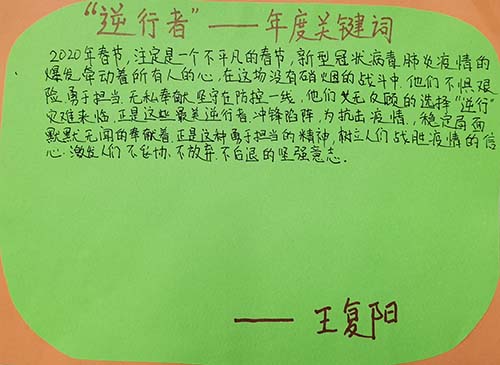 “逆行者”——年度关键词
2020年春节,注定是一个不平凡的春节,新型冠状病毒肺炎疫情的
爆发,牵动着所有人的心,在这场没有硝烟的战斗中.他们不惧艰
险.勇于担当.无私奉献.坚守在防控一线,他们义无反顾的选择“逆行”
灾难来临.正是这些最美逆行者,冲锋陷阵,为抗击疫情.,稳定局面
默默无闻的奉献着.正是这种勇于担当的精神,树立人们战胜疫情的信
心.激发人们不妥协.不放弃.不后退的坚强意志.
——王复阳